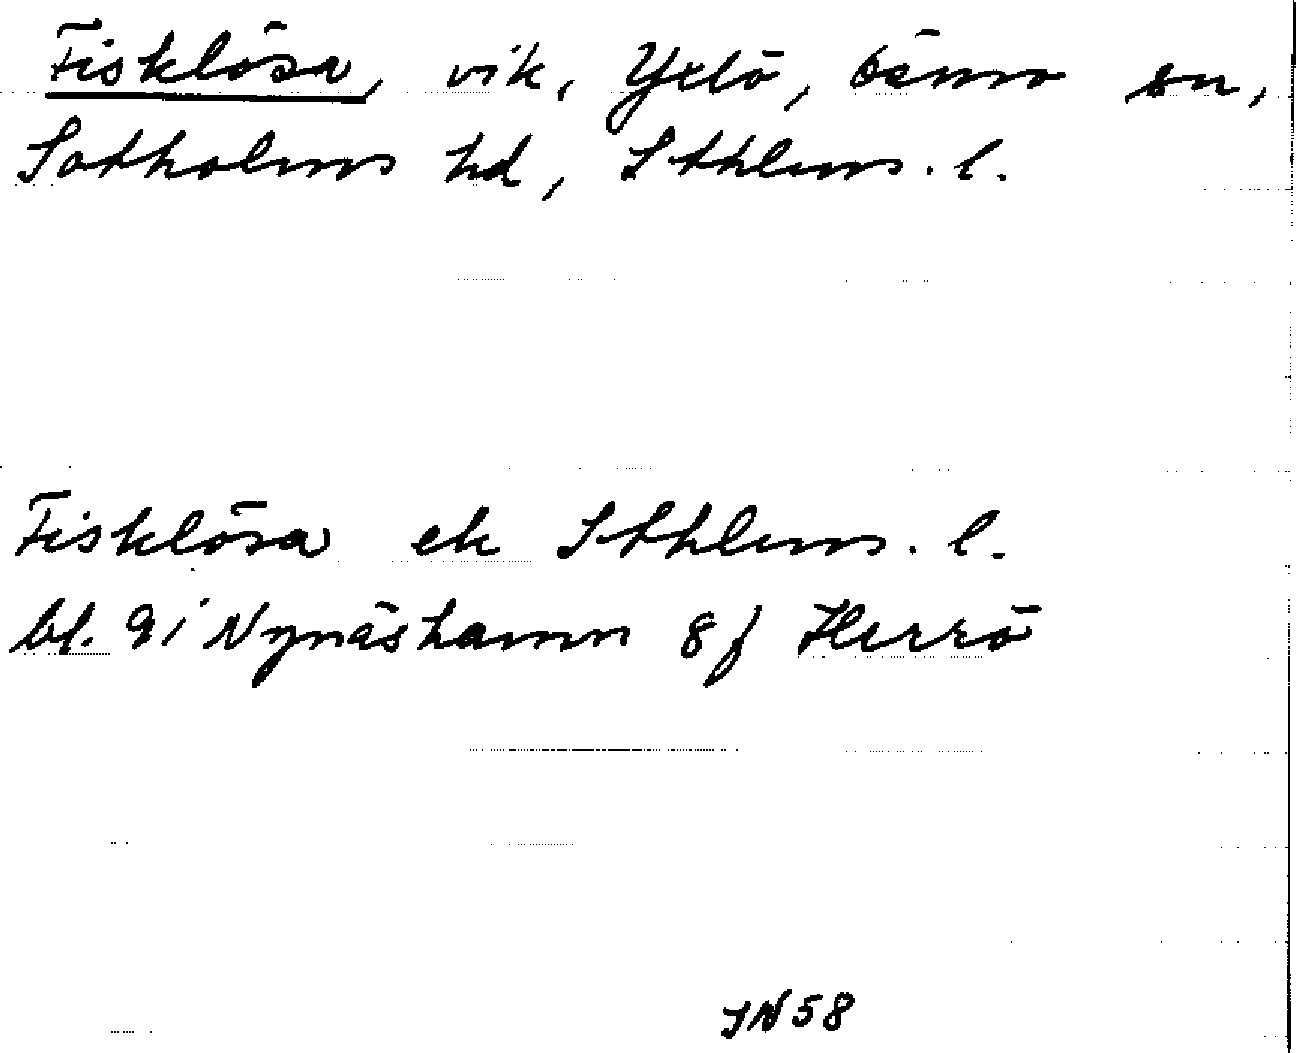 Fisklösa, vik, Yxlö, Ösmo sn,
Sotholms hd, Sthlms. l.
Fisklösa ek Sthlms. l.
bl. 9i Nynäshamn 8f Herrö
JN58